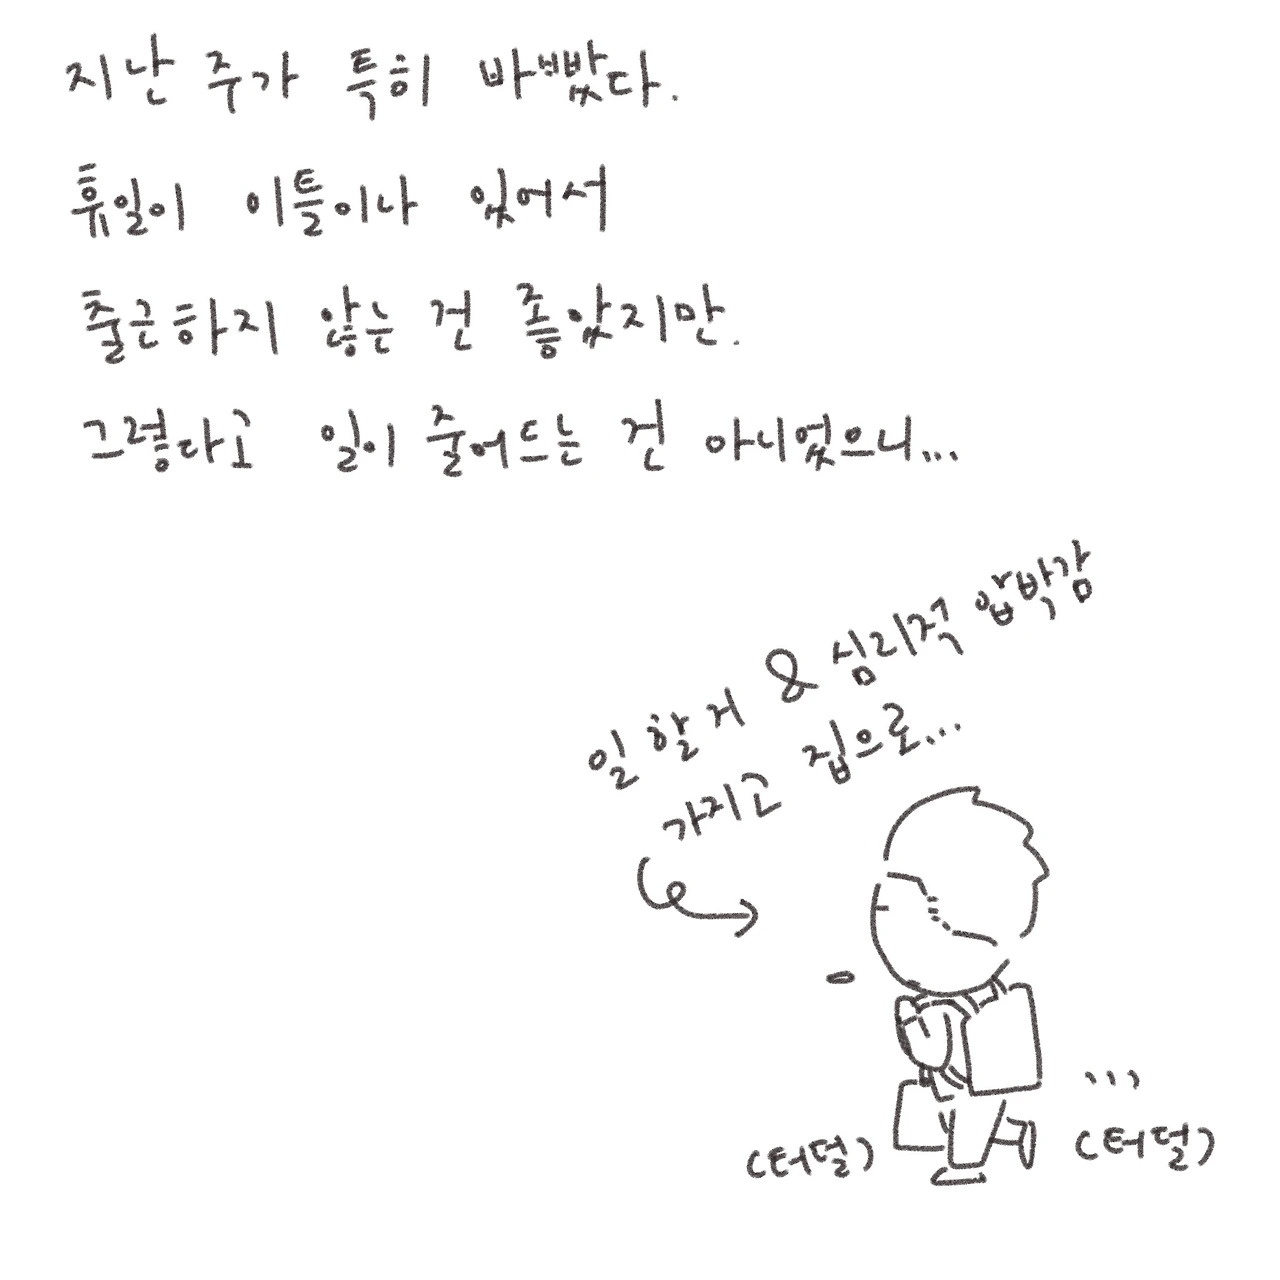 지난 주가 특히 바빴다.
휴일이 이틀이나 있어서
출근하지 않는 건 좋았지만.
그렇다고 일이 줄어드는 건 아니었으니...
일 할 거 & 심리적 압박감
가지고 집으로...
...
(터덜)
(터덜)